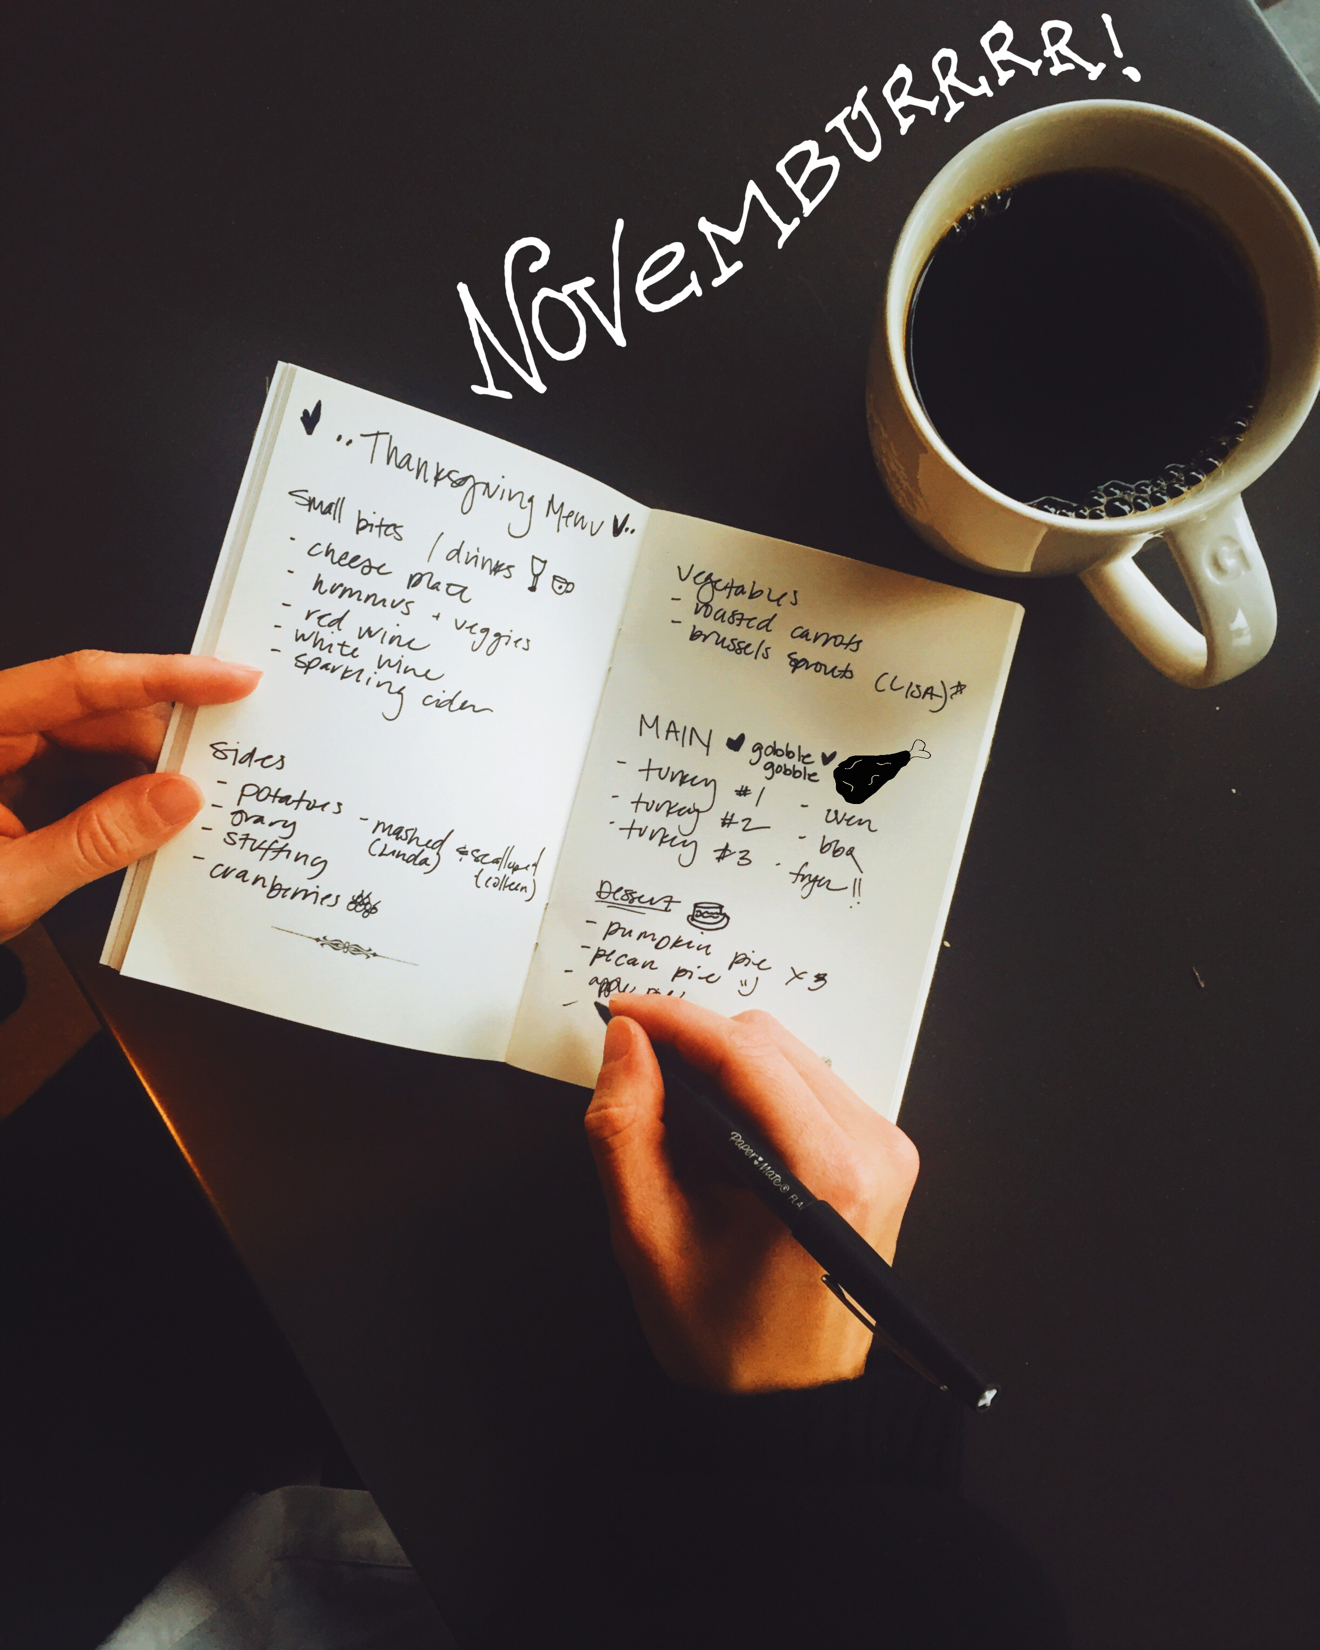 NOVEMBURRRR!
Thanksgiving Menu
Small bites / drinks
- cheese plate
- hummus + veggies
- red wine
- white wine
- sparkling cider
Sides
- potatoes
- mashed & scalloped
(Linda) (colleen)
- gravy
- stuffing
- cranberries
Vegetables
- roasted carrots
- brussels sprouts (LISA)*
MAIN gobble
gobble
- turkey #1 - oven
- turkey #2 - bbq
- turkey #3 - fryer!!
Dessert
- pumpkin pie x3
- pecan pie :)
- apple
-
Paper Mate®
G